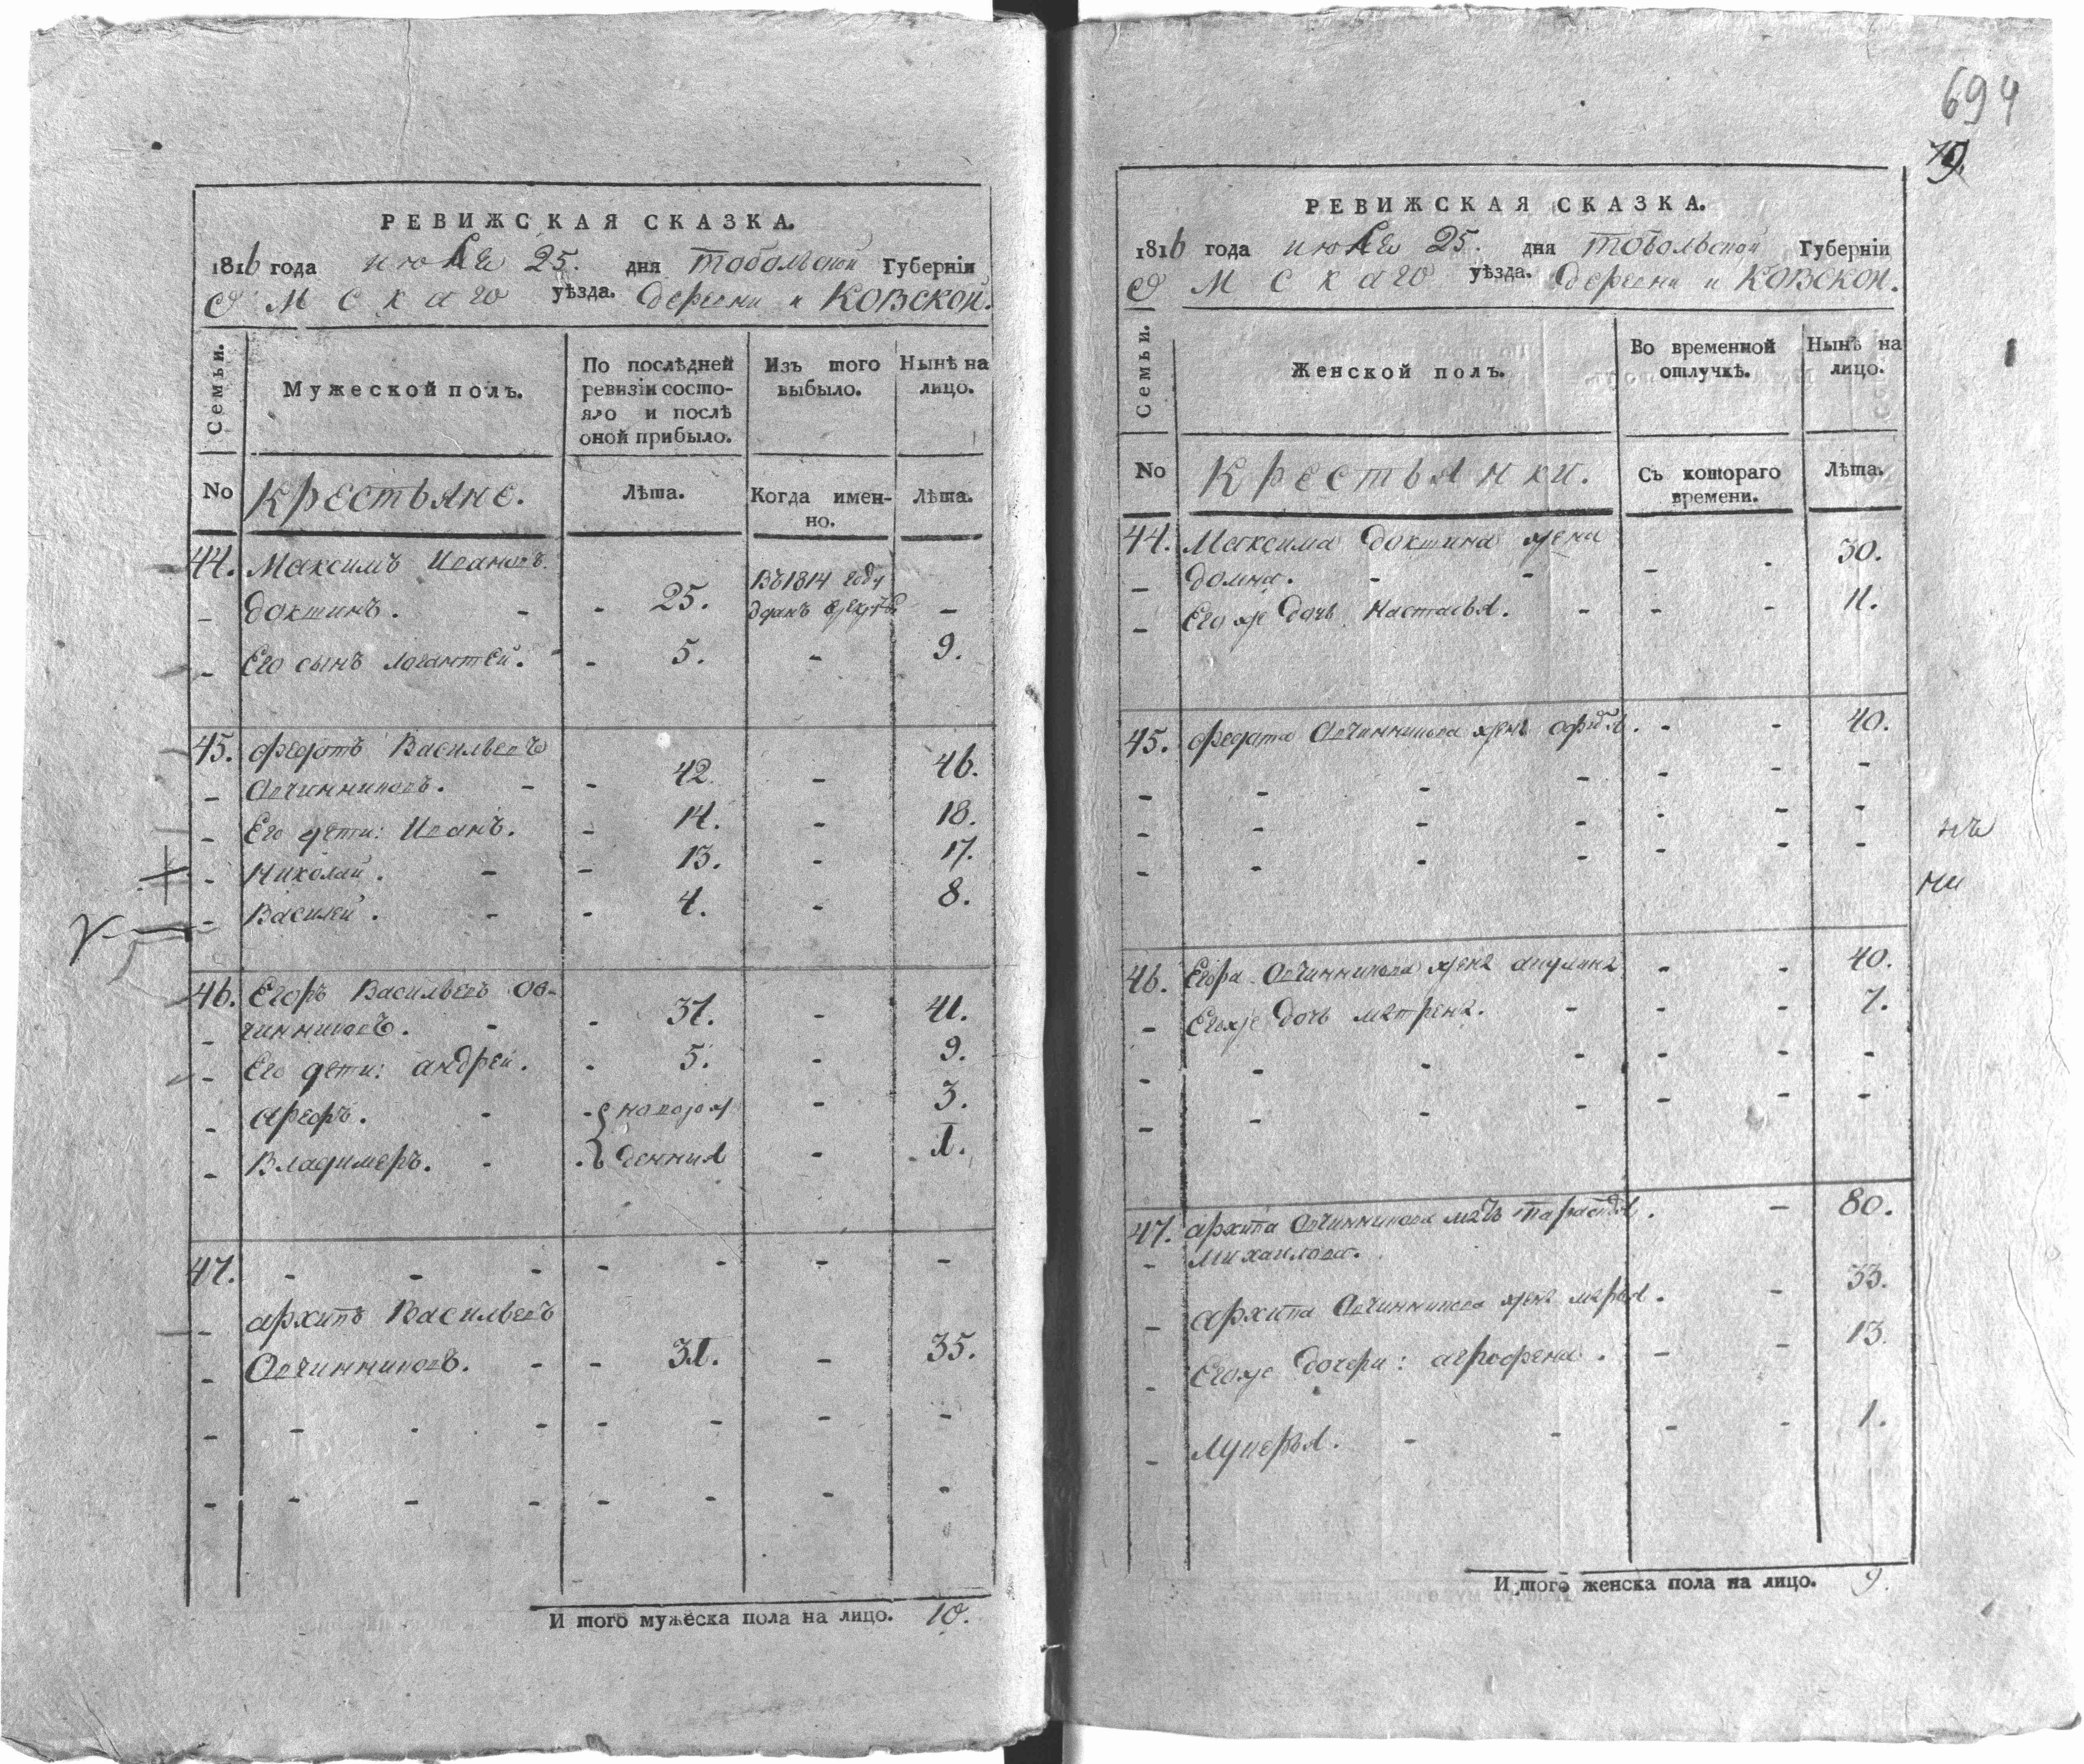 РЕВИЖСКАЯ СКАЗКА.
1816 года июля 25. дня Тобольской Губерніи
Омскаго уѣзда. деревни Иковской.
Семьи.
Мужеской полъ.
По послѣдней ревизіи состо-
яло и послѣ
оной прибыло.
Изъ того
выбыло.
Нынѣ на
лицо.
No
Крестьяне.
Лѣта.
Когда имен-
но.
Лѣта.
44. Максимъ Ивановъ
Въ 1814 году
Доктинъ. - - 25. отданъ -
Его сынъ - 5. - 9.
45. Федотъ Васильевъ
Овчинниковъ. - - 42. - 46.
Его дети: Иванъ. - 14. - 18.
Николай. - - 13. - 17.
Василей. - - 4. - 8.
46. Егоръ Васильевъ Ов-
чинниковъ. - - 37. - 41.
Его дети: андрей. - 5. - 9.
- новорож - 3.
Владимеръ. - денния - 1.
47. - - - - - - -
архипъ Васильевъ
Овчинниковъ. - - 31. - 35.
И того мужеска пола на лицо. 10.
694
79.
РЕВИЖСКАЯ СКАЗКА.
1816 года июля 25. дня Тобольской Губерніи
Омскаго уѣзда. деревни Иковской.
Семьи.
Женской полъ.
Во временной
отлучкѣ.
Нынѣ на
лицо.
No
Крестьянки.
Съ котораго
времени.
Лѣта.
44. Максима Доктина жена
домна. - - - - 30.
Его же дочь Настасья. - - - 11.
45. Федота Овчинникова жена - - 40.
46. Егора Овчинникова жена акулина - - 40.
Егоже дочь матрена. - - - 7.
47. архипа Овчинникова мать - 80.
Михаилова.
архипа Овчинникова жена марья. - 33.
Егоже дочери: агрофена. - - 13.
Лукерья. - - - - 1.
И того женска пола на лицо. 9.